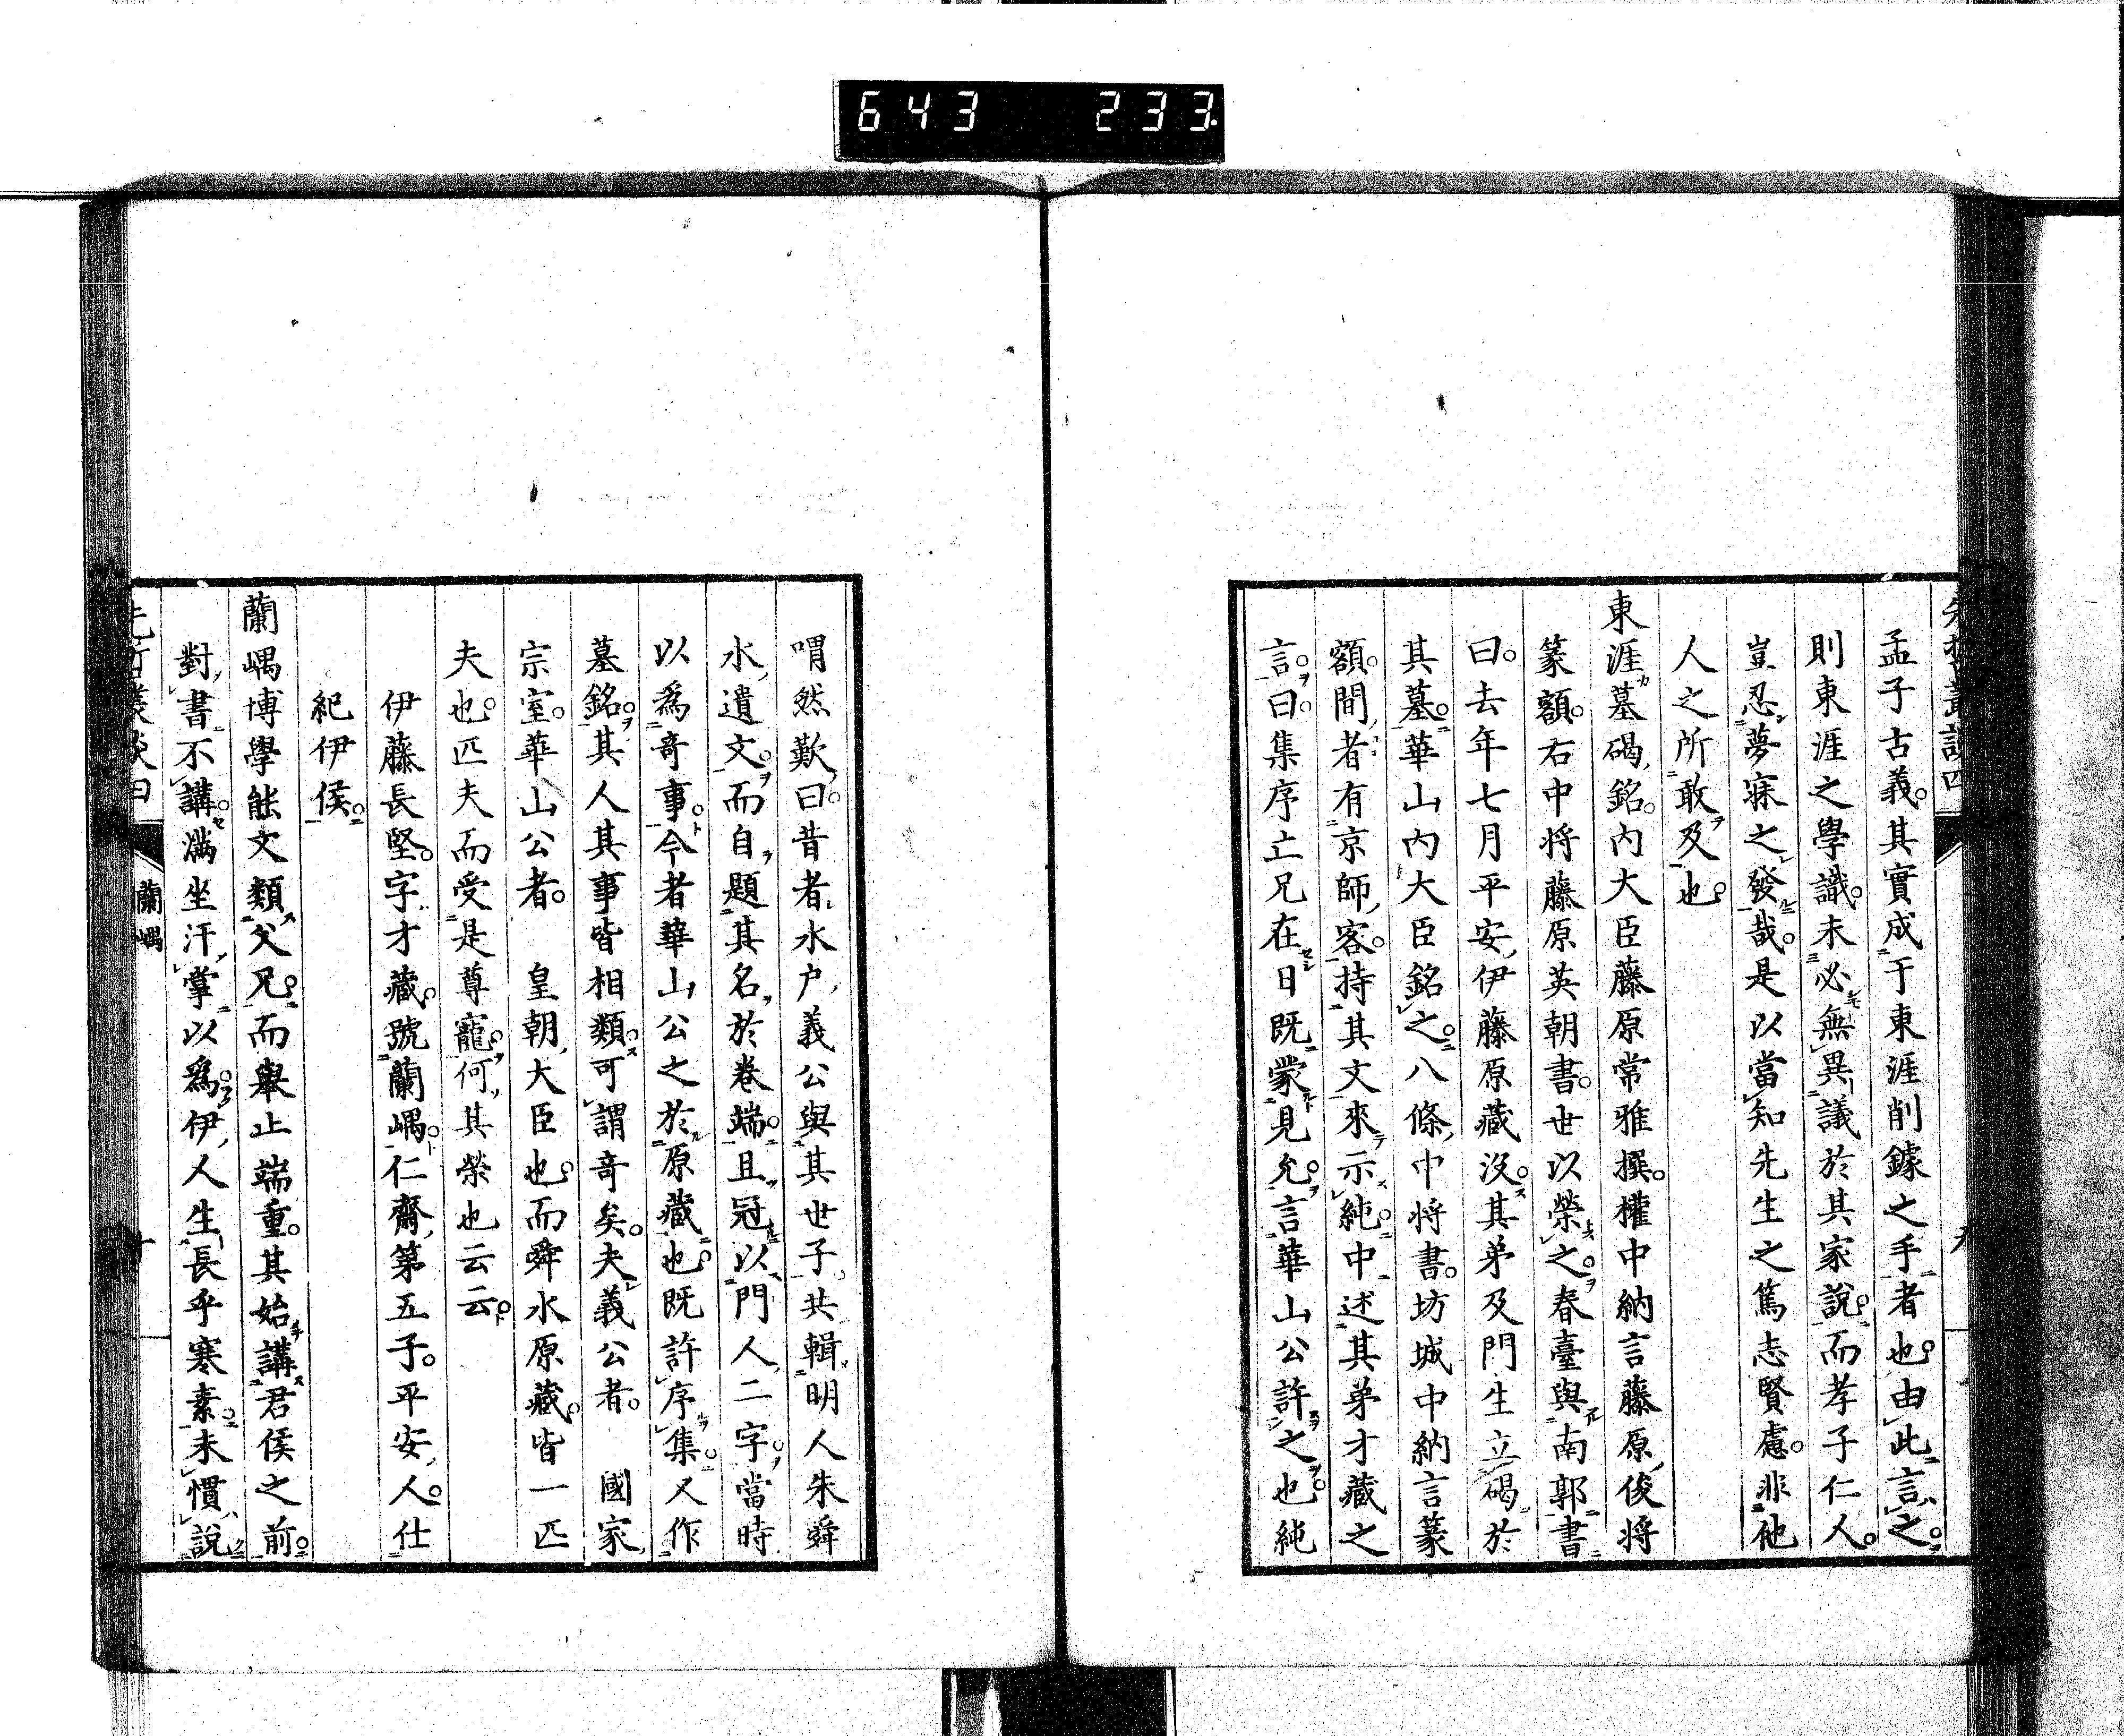 643 233
先哲叢談四
九
孟子古義其實成于東涯削鐻之手者也由此言之
則東涯之學識未必無異議於其家說而孝子仁人
豈忍夢寐之發哉是以當知先生之篤志賢慮非他
人之所敢及也
東涯墓碣銘內大臣藤原常雅撰權中納言藤原俊将
篆額右中将藤原英朝書世以榮之春臺與南郭書
曰去年七月平安伊藤原藏沒其弟及門生立碣於
其墓華山內大臣銘之八條中将書坊城中納言篆
額間者有京師客持其文來示純中述其弟才藏之
言曰集序亡兄在日既蒙見允言華山公許之也純
喟然歎曰昔者水户義公與其世子共輯明人朱舜
水遺文而自題其名於卷端且冠以門人二字當時
以爲竒事今者華山公之於原藏也既許序集又作
墓銘其人其事皆相類可謂竒矣夫義公者 國家
宗室華山公者 皇朝大臣也而舜水原藏皆一匹
夫也匹夫而受是尊寵何其榮也云云
伊藤長堅字才藏號蘭嵎仁齋第五子平安人仕
紀伊侯
蘭嵎博學能文類父兄而舉止端重其始講君侯之前
對書不講滿坐汗掌以爲伊人生長乎寒素未慣說
先哲叢談四
蘭嵎
十